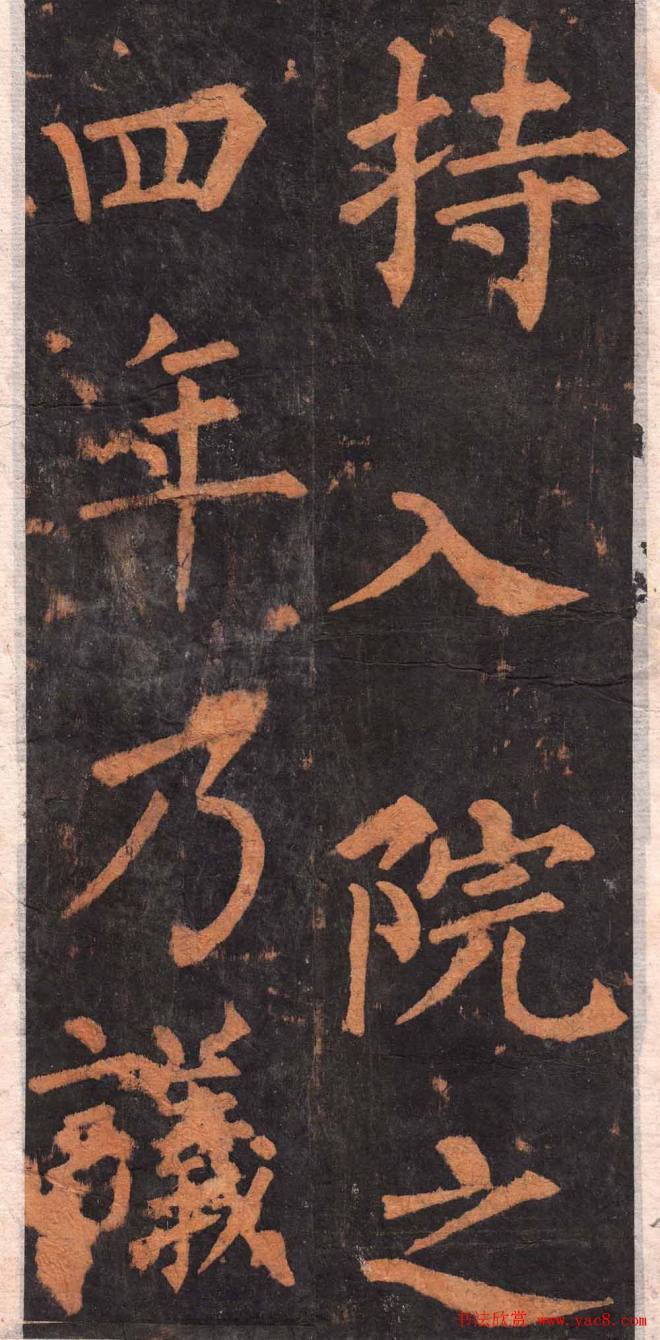 持入院之
四年乃議
书法欣赏 www.yac8.com